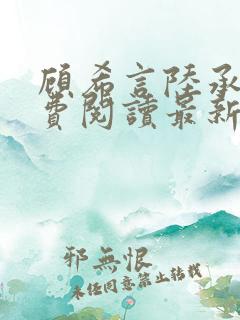 顾希言陸承
費閱讀最新
邪無恨
未经同意禁止转载